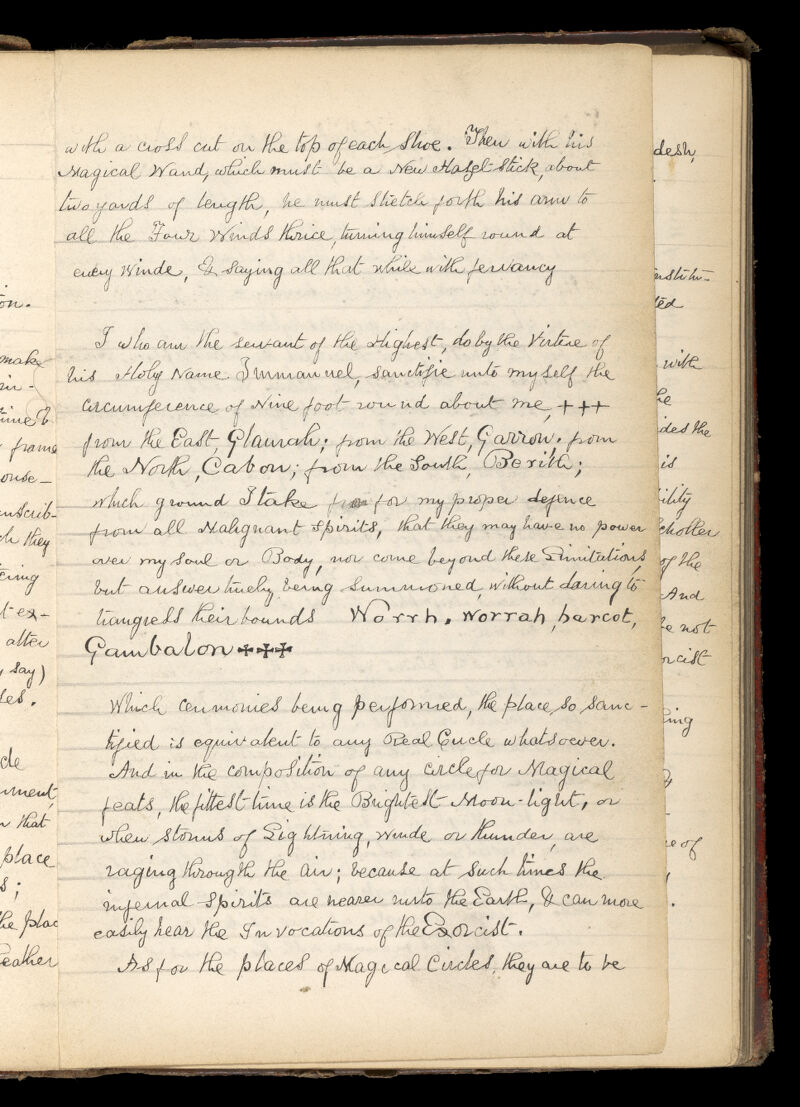 with a cross cut on the top of each shoe. Then with his
Magical Wand, which must be a New Hasel-stick, about
two yards of length, he must stretch forth his arm to
all the Four Winds thrice, turning himself round at
every Winde, & saying all that while with fervancy
I who am the servant of the Highest, do by the Virtue of
his Holy Name Immanuel, sanctifie unto myself the
circumference of Nine foot round about me, +++
from the East, Glaurah; from the West, Garron; from
the North, Cabon; from the South, Berith;
which ground I take for my proper defence
from all Malignant spirits, that they may have no power
over my soul or Body, nor come beyond these Limitations,
but answer truely being summoned, without daring to
trangress their bounds Worrh. Worrah, harcot,
Gambalon ✠✠✠
Which cerimonies being performed, the place so sanc-
tified is equivalent to any Real Circle whatsoever.
And in the composition of any circle for Magical
feats, the fittest time is the Brightest Moon-light, or
when storms of Lightning, Winde or thunder, are
raging through the air; because at such times the
infernal Spirits are nearer unto the Earth, & can more
easily hear the Invocations of the Exorcist.
As for the places of Magical Circles, they are to be
on.
make
time
frame
ouse-
nscrib-
they
t ex-
after
say)
cle
that
place
the plac
desh,
institu-
ted
with
he
ides the
is
ility
scholler
of the
And
be not
orcist
ing
re of